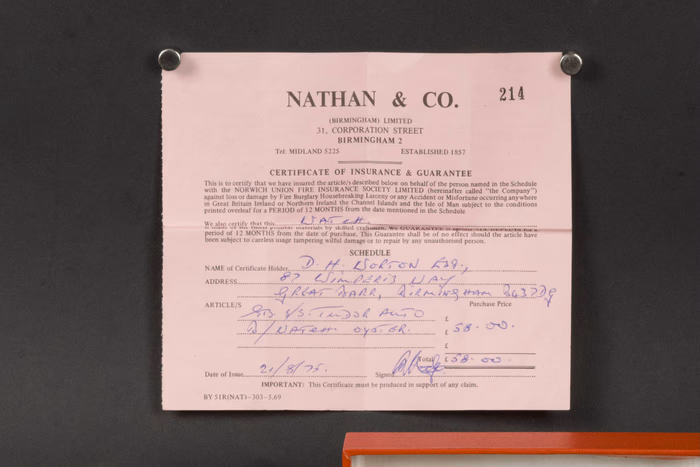 NATHAN & CO.
214
(BIRMINGHAM) LIMITED
31, CORPORATION STREET
BIRMINGHAM 2
Tel. MIDLAND 5225 ESTABLISHED 1857
CERTIFICATE OF INSURANCE & GUARANTEE
This is to certify that we have insured the article/s described below on behalf of the person named in the Schedule
with the NORWICH UNION FIRE INSURANCE SOCIETY LIMITED (hereinafter called "the Company")
against loss or damage by Fire Burglary Housebreaking Larceny or any Accident or Misfortune occurring anywhere
in Great Britain Ireland or Northern Ireland the Channel Islands and the Isle of Man subject to the conditions
printed overleaf for a PERIOD of 12 MONTHS from the date mentioned in the Schedule
We also certify that this WATCH
period of 12 MONTHS from the date of purchase. This Guarantee shall be of no effect should the article have
been subject to careless usage tampering wilful damage or to repair by any unauthorised person.
SCHEDULE
NAME of Certificate Holder D. H. WORTON ESQ.,
ADDRESS 87 WIMPERIS WAY
GREAT BARR, BIRMINGHAM B43 7DG
ARTICLE/S Purchase Price
S/S TUDOR AUTO £
W/WATCH OYSTER. £ 58.00.
£
Total £58.00.
Date of Issue 21/8/75. Signed
IMPORTANT: This Certificate must be produced in support of any claim.
BY 51R(NAT)-303-5.69